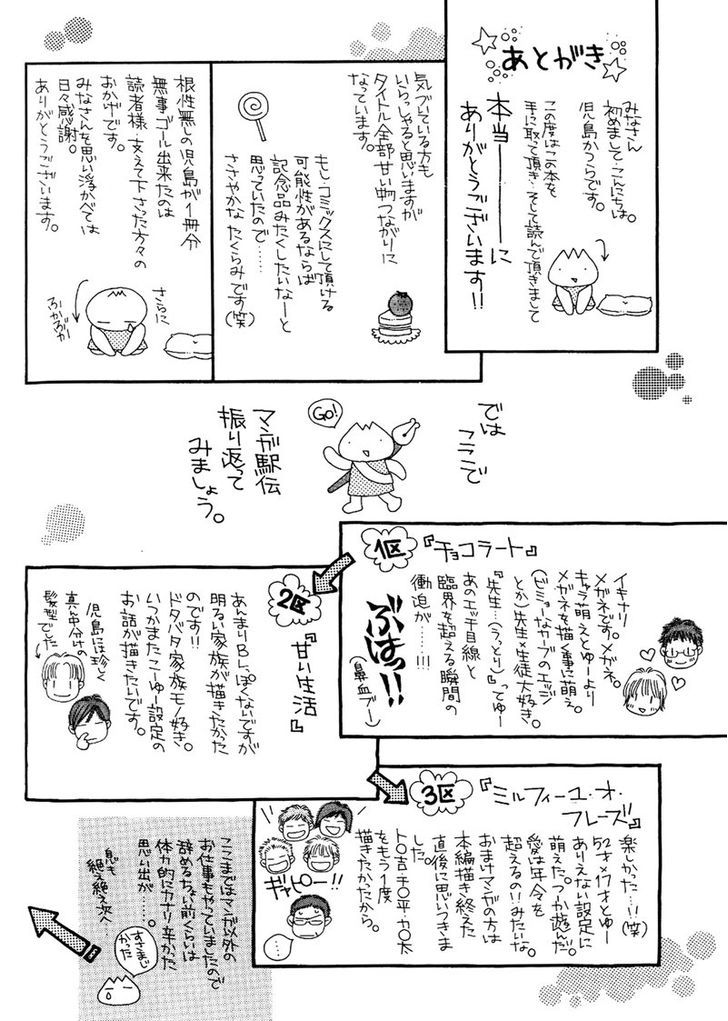 あとがき
みなさん
初めまして・こんにちは。
児島かつらです。
この度はこの本を
手に取って頂き・そして読んで頂きまして
本当――――に
ありがとうございます!!
気づいている方も
いらっしゃると思いますが
タイトル全部甘い物つながりに
なっています。
もし・コミックスにして頂ける
可能性があるならば
記念品みたくしたいなーと
思っていたので……
ささやかなたくらみです(笑)
根性無しの児島が1冊分
無事ゴール出来たのは
おかげです。
読者様・支えて下さった方々の
みなさんを思い浮かべては
日々感謝。
ありがとうございます。
さらに
ふかぶか
では
ここで
Go!
マンガ駅伝
振り返って
みましょう。
1区
『チョコラート』
イキナリ
メガネです。メガネ。
キャラ萌えとゆーより
メガネを描く事に萌え。
(ビミョーなカーブのエッジ
とか)先生×生徒大好き。
『先生…(うっとり)』ってゆー
あのエッチ目線と
臨界を超える瞬間の
衝迫が……!!!
ぶはっ!!
(鼻血ブー)
2区
『甘い生活』
あんまりBLぽくないですが
明るい家族が描きたかった
のです!!
ドタバタ家族モノ好き。
いつかまたこーゆー設定の
お話が描きたいです。
児島には珍しく
真中分けの
髪型でした
3区
『ミルフィーユ・オ・
フレーズ』
楽しかった…!!(笑)
52才×17才とゆー
ありえない設定に
萌えた。つか遊んだ。
愛は年令を
超えるの!!みたいな。
おまけマンガの方は
本編描き終えた
直後に思いつきま
した。
ト○吉・チ○平・カ○太
をもう1度
描きたかったから。
ギャピー!!
…
ここまではマンガ以外の
お仕事もやっていましたので
辞めるちょい前くらいは
体力的にカナリ辛かった
思い出が……。
息も
絶え絶え状…
すさまじ
かった